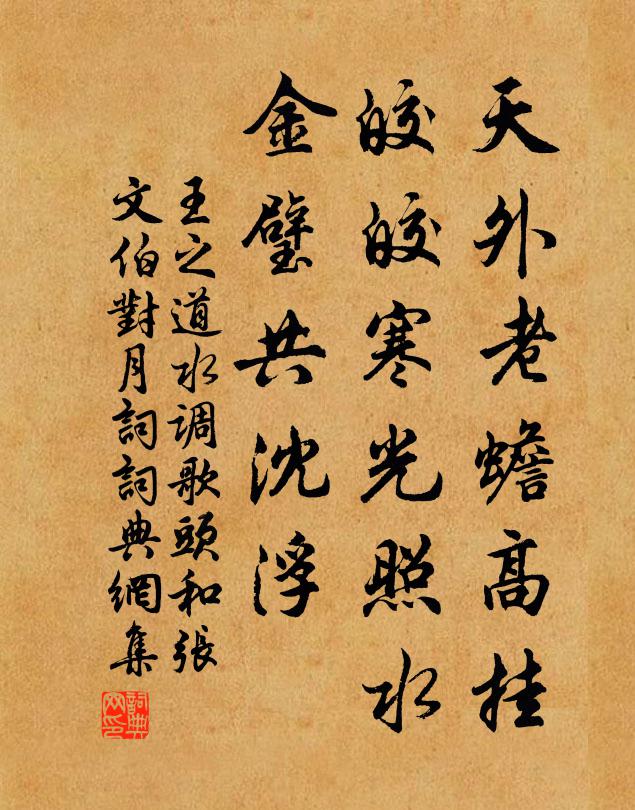 天外老蟾高挂
皎皎寒光照水
金璧共沈浮
王之道水调歌頭和張
文伯對月詞詞典網集
詞典
网印